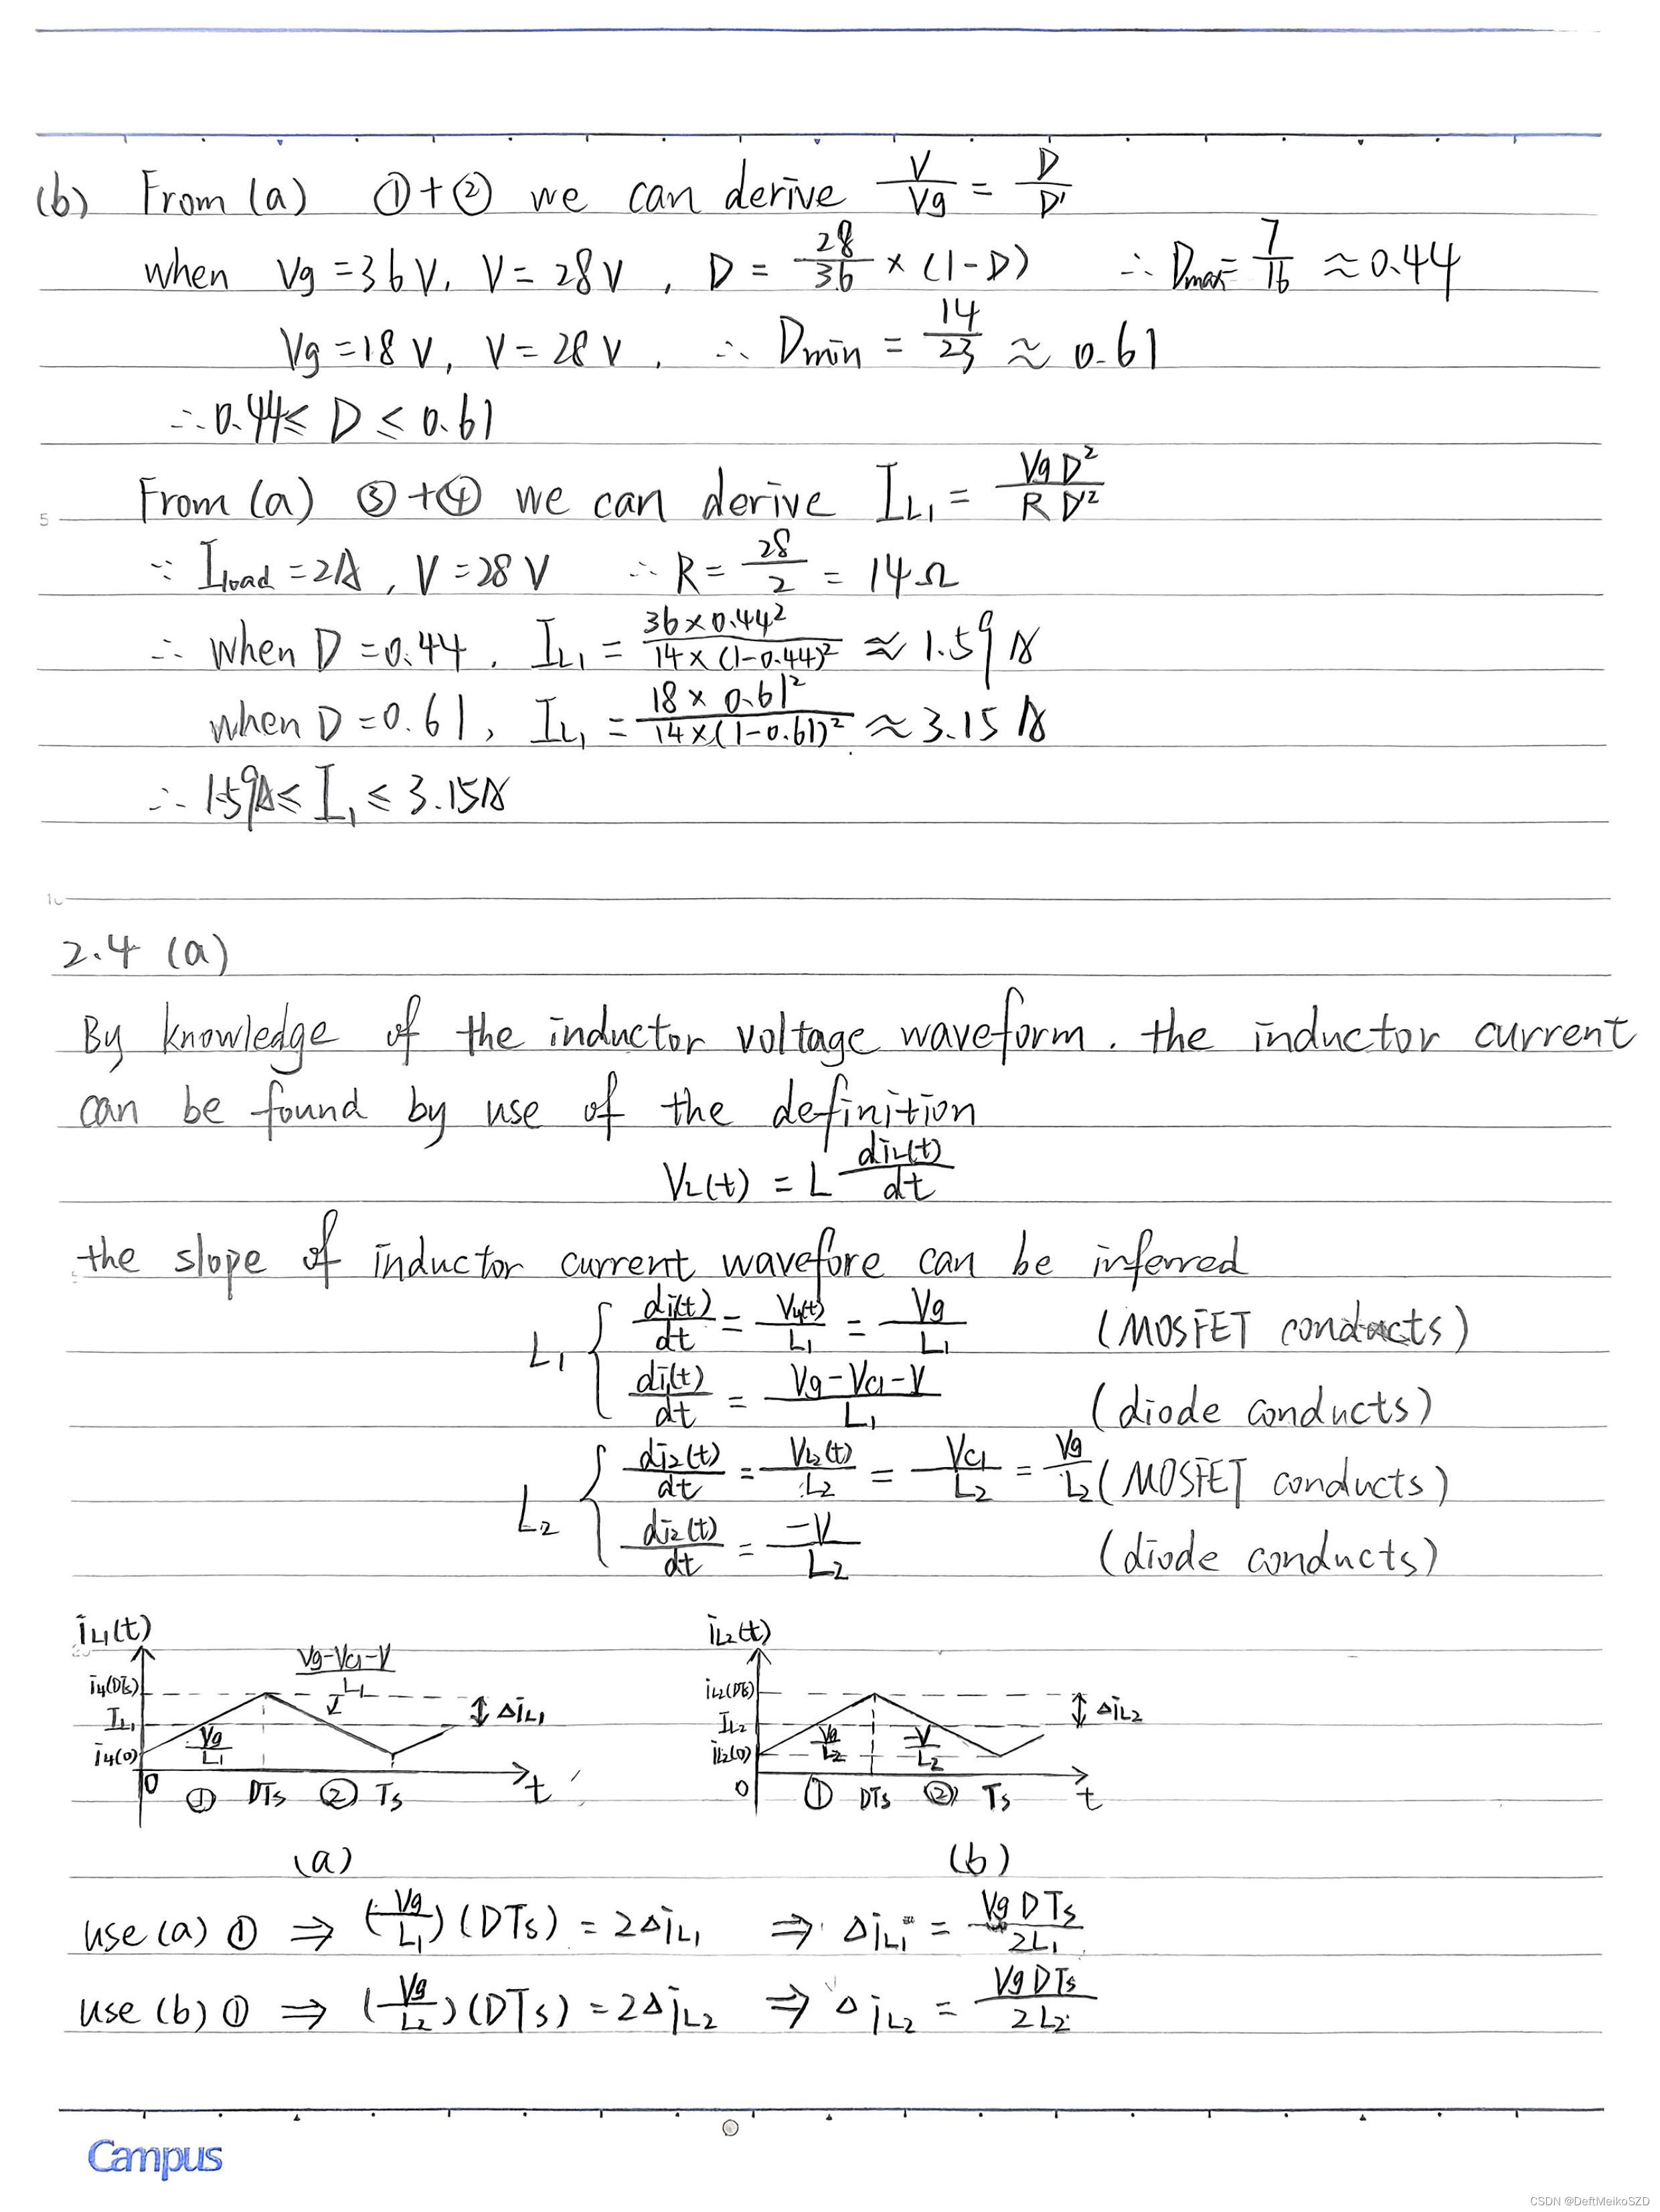 (b) From (a) ①+② we can derive V/Vg = D/D'
when Vg=36V, V=28V, D = 28/36 × (1-D) ∴ Dmax= 7/16 ≈0.44
Vg=18V, V=28V, ∴ Dmin = 14/23 ≈ 0.61
∴ 0.44≤ D ≤ 0.61
From (a) ③+④ we can derive IL1 = VgD²/RD'²
5
∵ Iload=2A, V=28V ∴ R= 28/2 = 14Ω
∴ when D=0.44, IL1 = 36×0.44²/14×(1-0.44)² ≈ 1.59A
when D=0.61, IL1 = 18×0.61²/14×(1-0.61)² ≈ 3.15A
∴ 1.59A≤ I1 ≤ 3.15A
10
2.4 (a)
By knowledge of the inductor voltage waveform. the inductor current
can be found by use of the definition
VL(t) = L diL(t)/dt
the slope of inductor current wavefore can be inferred
L1 { di1(t)/dt = VL1(t)/L1 = Vg/L1 (MOSFET conducts)
di1(t)/dt = Vg-VC1-V/L1 (diode conducts)
L2 { di2(t)/dt = VL2(t)/L2 = VC1/L2 = Vg/L2 (MOSFET conducts)
di2(t)/dt = -V/L2 (diode conducts)
iL1(t) iL2(t)
Vg-VC1-V/L1
iL1(DTs) iL2(DTs)
IL1 ΔiL1 IL2 ΔiL2
iL1(0) Vg/L1 iL2(0) Vg/L2 -V/L2
0 ① DTs ② Ts t 0 ① DTs ② Ts t
(a) (b)
use (a) ① ⇒ (Vg/L1)(DTs) = 2ΔiL1 ⇒ ΔiL1 = VgDTs/2L1
use (b) ① ⇒ (Vg/L2)(DTs) = 2ΔiL2 ⇒ ΔiL2 = VgDTs/2L2
Campus
CSDN @DeftMeikoSZD